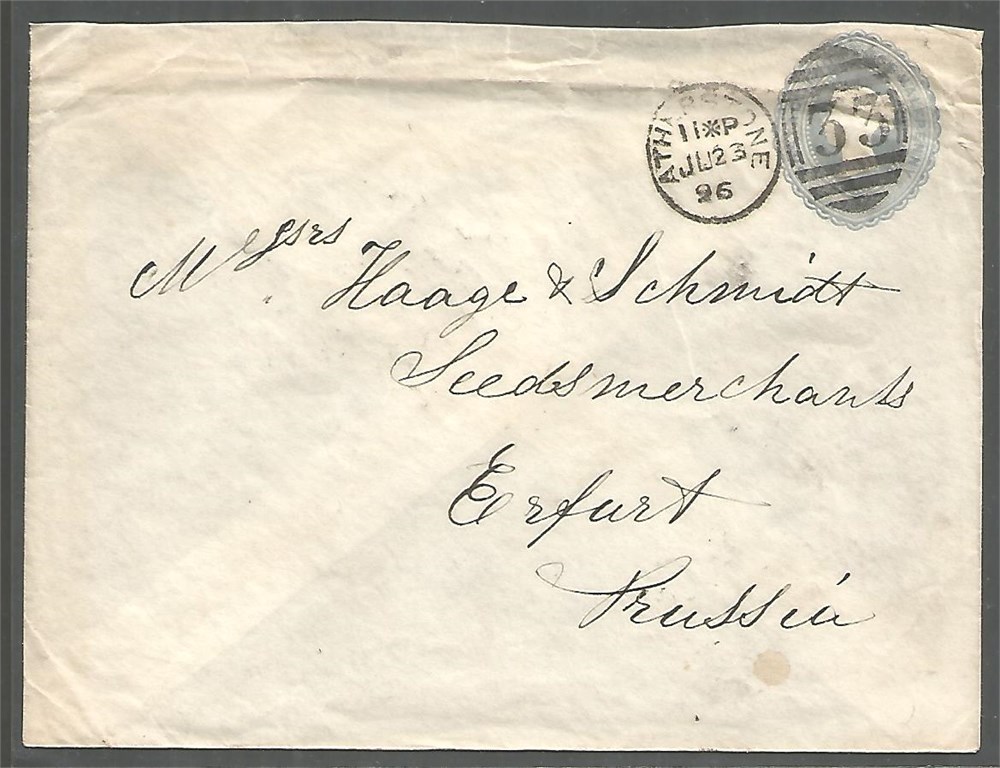 ATHERSTONE
11*P
JU23
96
33
Messrs Haage & Schmidt
Seedsmerchants
Erfurt
Prussia